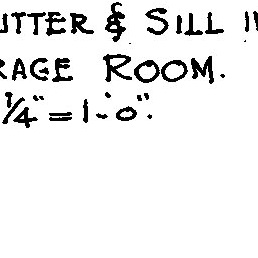 UTTER & SILL I
RAGE ROOM.
1/4" = 1'-0".